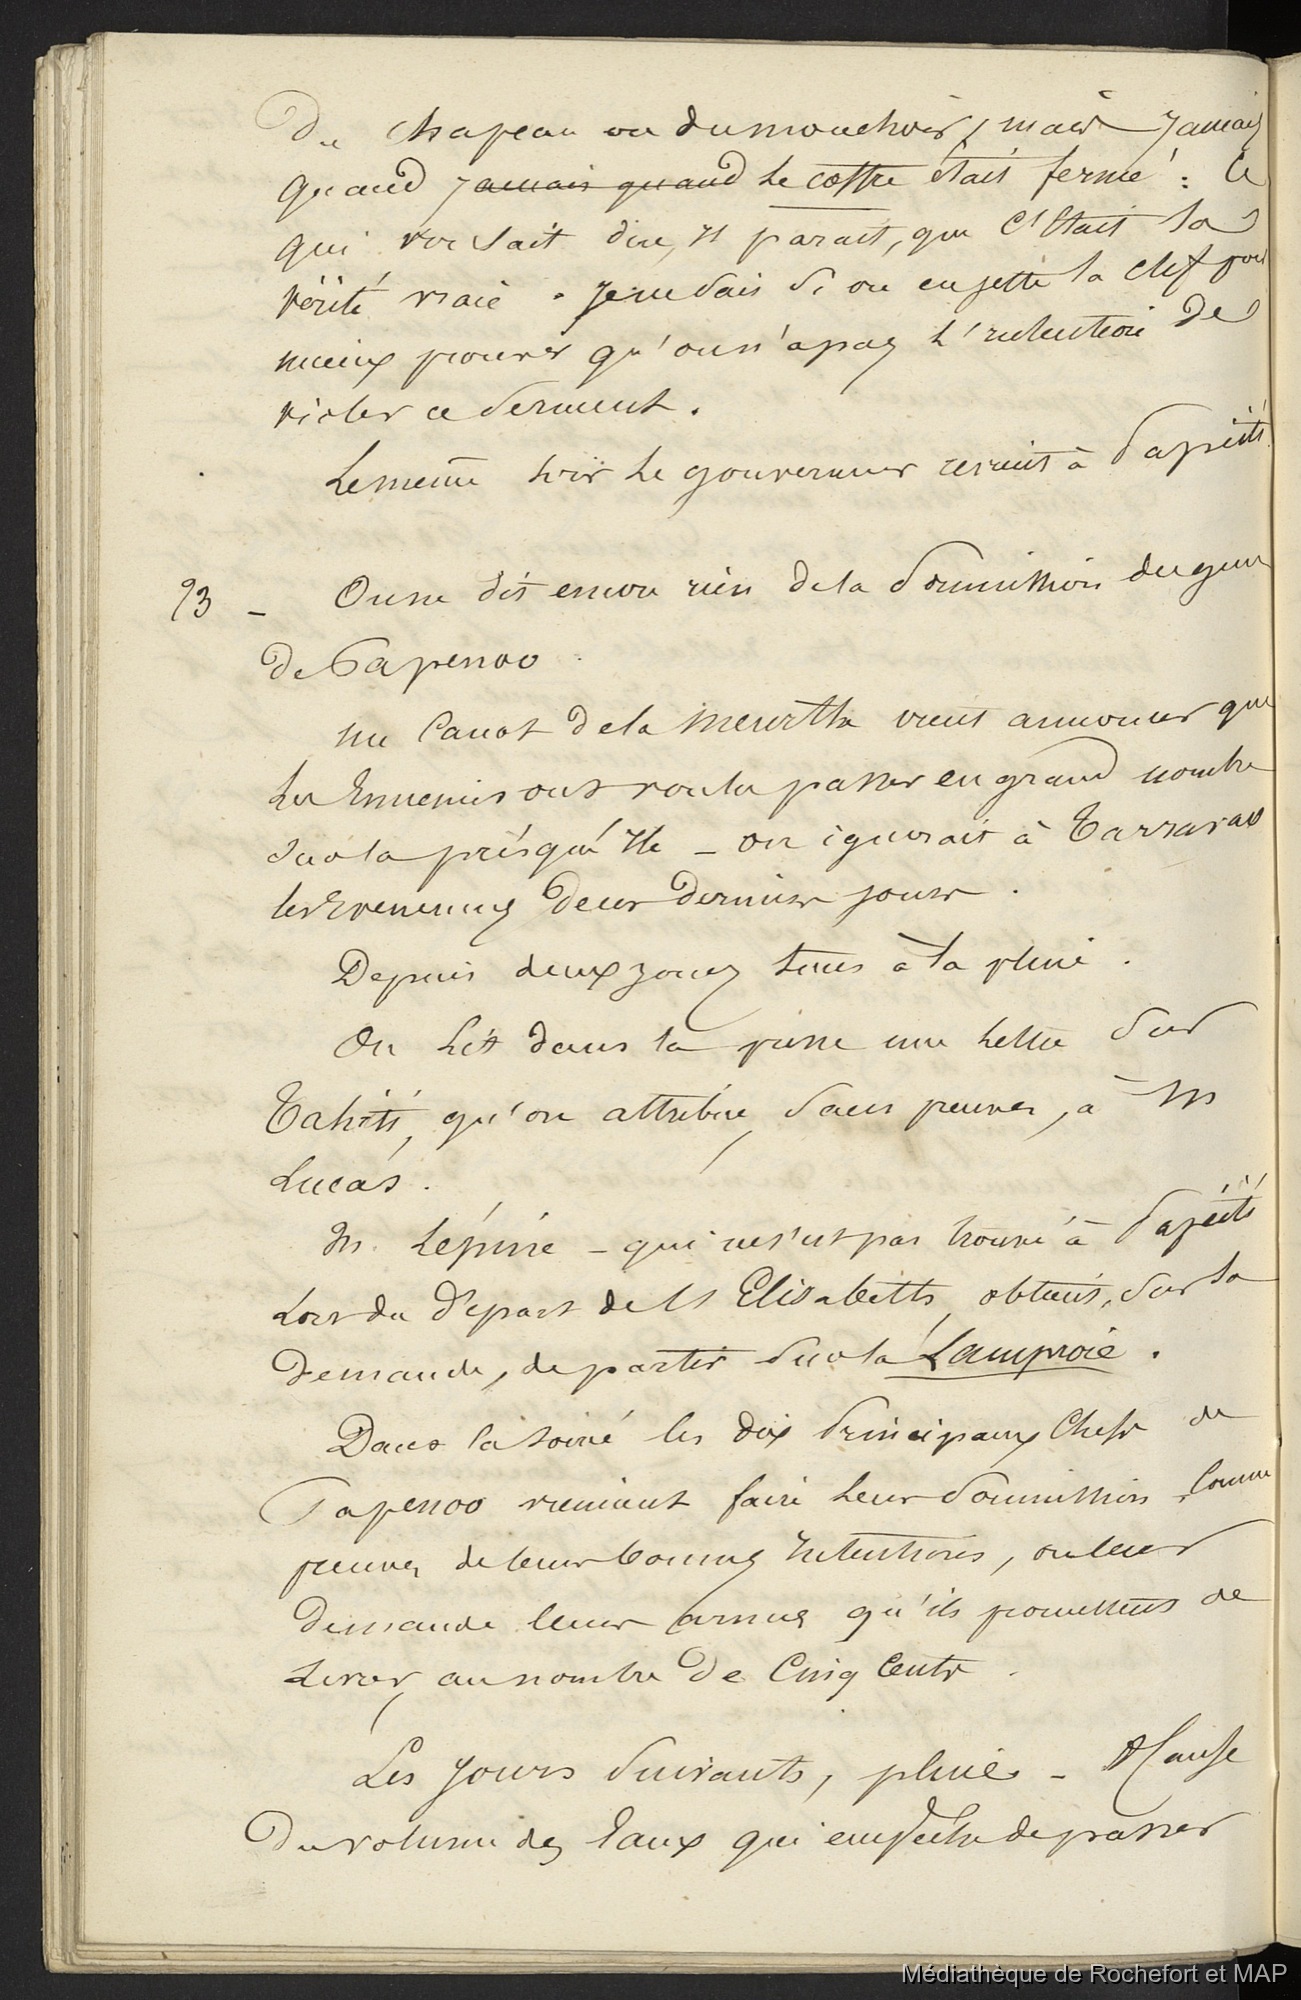 Du chapeau ou du mouchoir, mais jamais
quand <s>jamais quand</s> le coffre était fermé : Ce
qui voulait dire, il parait, que c'était la
vérité vraie . Je ne sais si on en jetta la clef pour
mieux prouver qu'on n'a pas l'intention de
violer ce serment .
Le même soir le gouverneur revint à Papéiti
23 - On ne dit encore rien de la soumission des gens
de Papenoo .
un canot de la Meurthe vient annoncer que
les Ennemis ont voulu passer en grand nombre
sur la présqu'île - on ignorait à Tarravao
les Evenemens de ces derniers jours .
Depuis deux jours tems à la pluie .
On lit dans la presse une lettre sur
Tahiti, qu'on attribue, sans preuves, à M
Lucas .
M. Lépine - qui ne s'est pas trouvé à Papéiti
Lors du départ de l'Elisabeth, obtient, sur sa
Demande, de partir sur la Lamproie .
Dans la soirée les dix principaux Chefs de
Papenoo viennent faire leur soumission, Comme
preuves de leurs bonnes intentions, on leur
demande leurs armes qu'ils promettent de
livrer, au nombre de Cinq Cents .
Les jours suivants, pluie - A Cause
Du volume des Eaux qui empêche de passer
Médiathèque de Rochefort et MAP